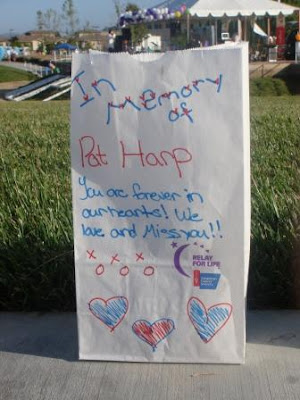 In
Memory
of
Pat Harp
You are forever in
our hearts! We
love and Miss you!!
x x x
o o o
RELAY
FOR LIFE